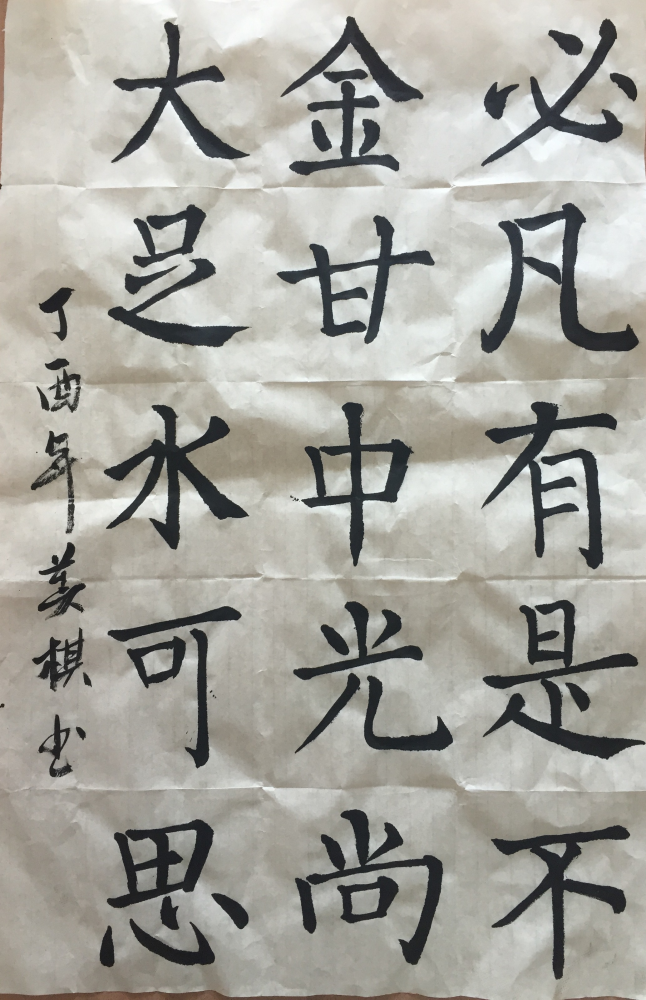 必凡有是不
金甘中光尚
大足水可思
丁酉年姜棋书